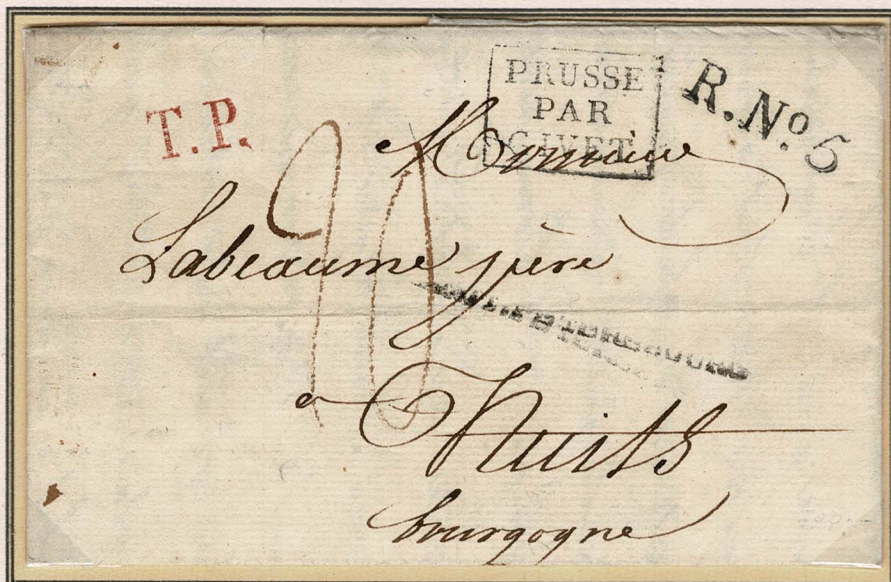 PRUSSE
PAR
GIVET
R.No 5
T.P.
Monsieur
Labeaume père
a Nuits
bourgogne